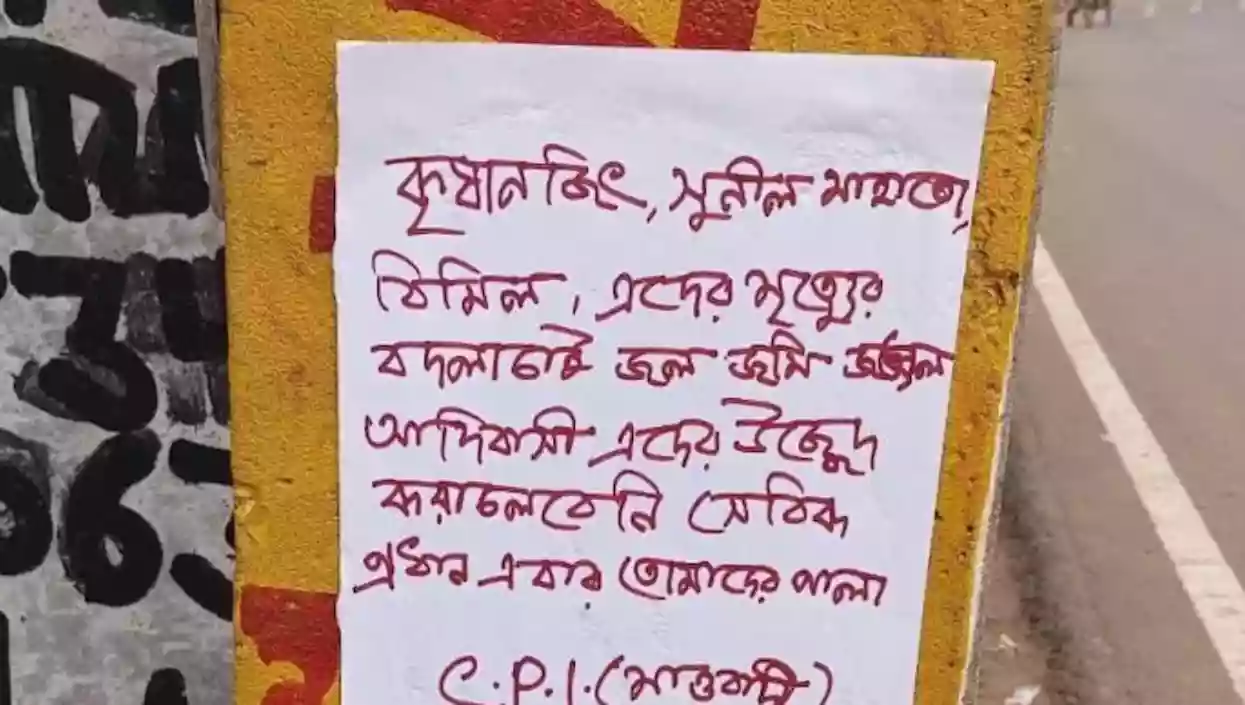 কৃষানজিৎ, সুনীল মাহাতো,
বিমিল, এদের মৃত্যুর
বদলাচাই জল জমি জঙ্গল
আদিবাসী এদের উচ্ছেদ
করাচলবেনি সেবিক
প্রধান এবার তোমাদের পালা
C.P.I.(মাওবাদী)